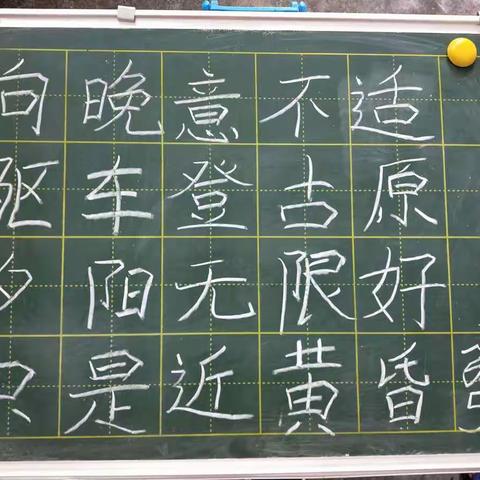 向晚意不适
驱车登古原
夕阳无限好
只是近黄昏